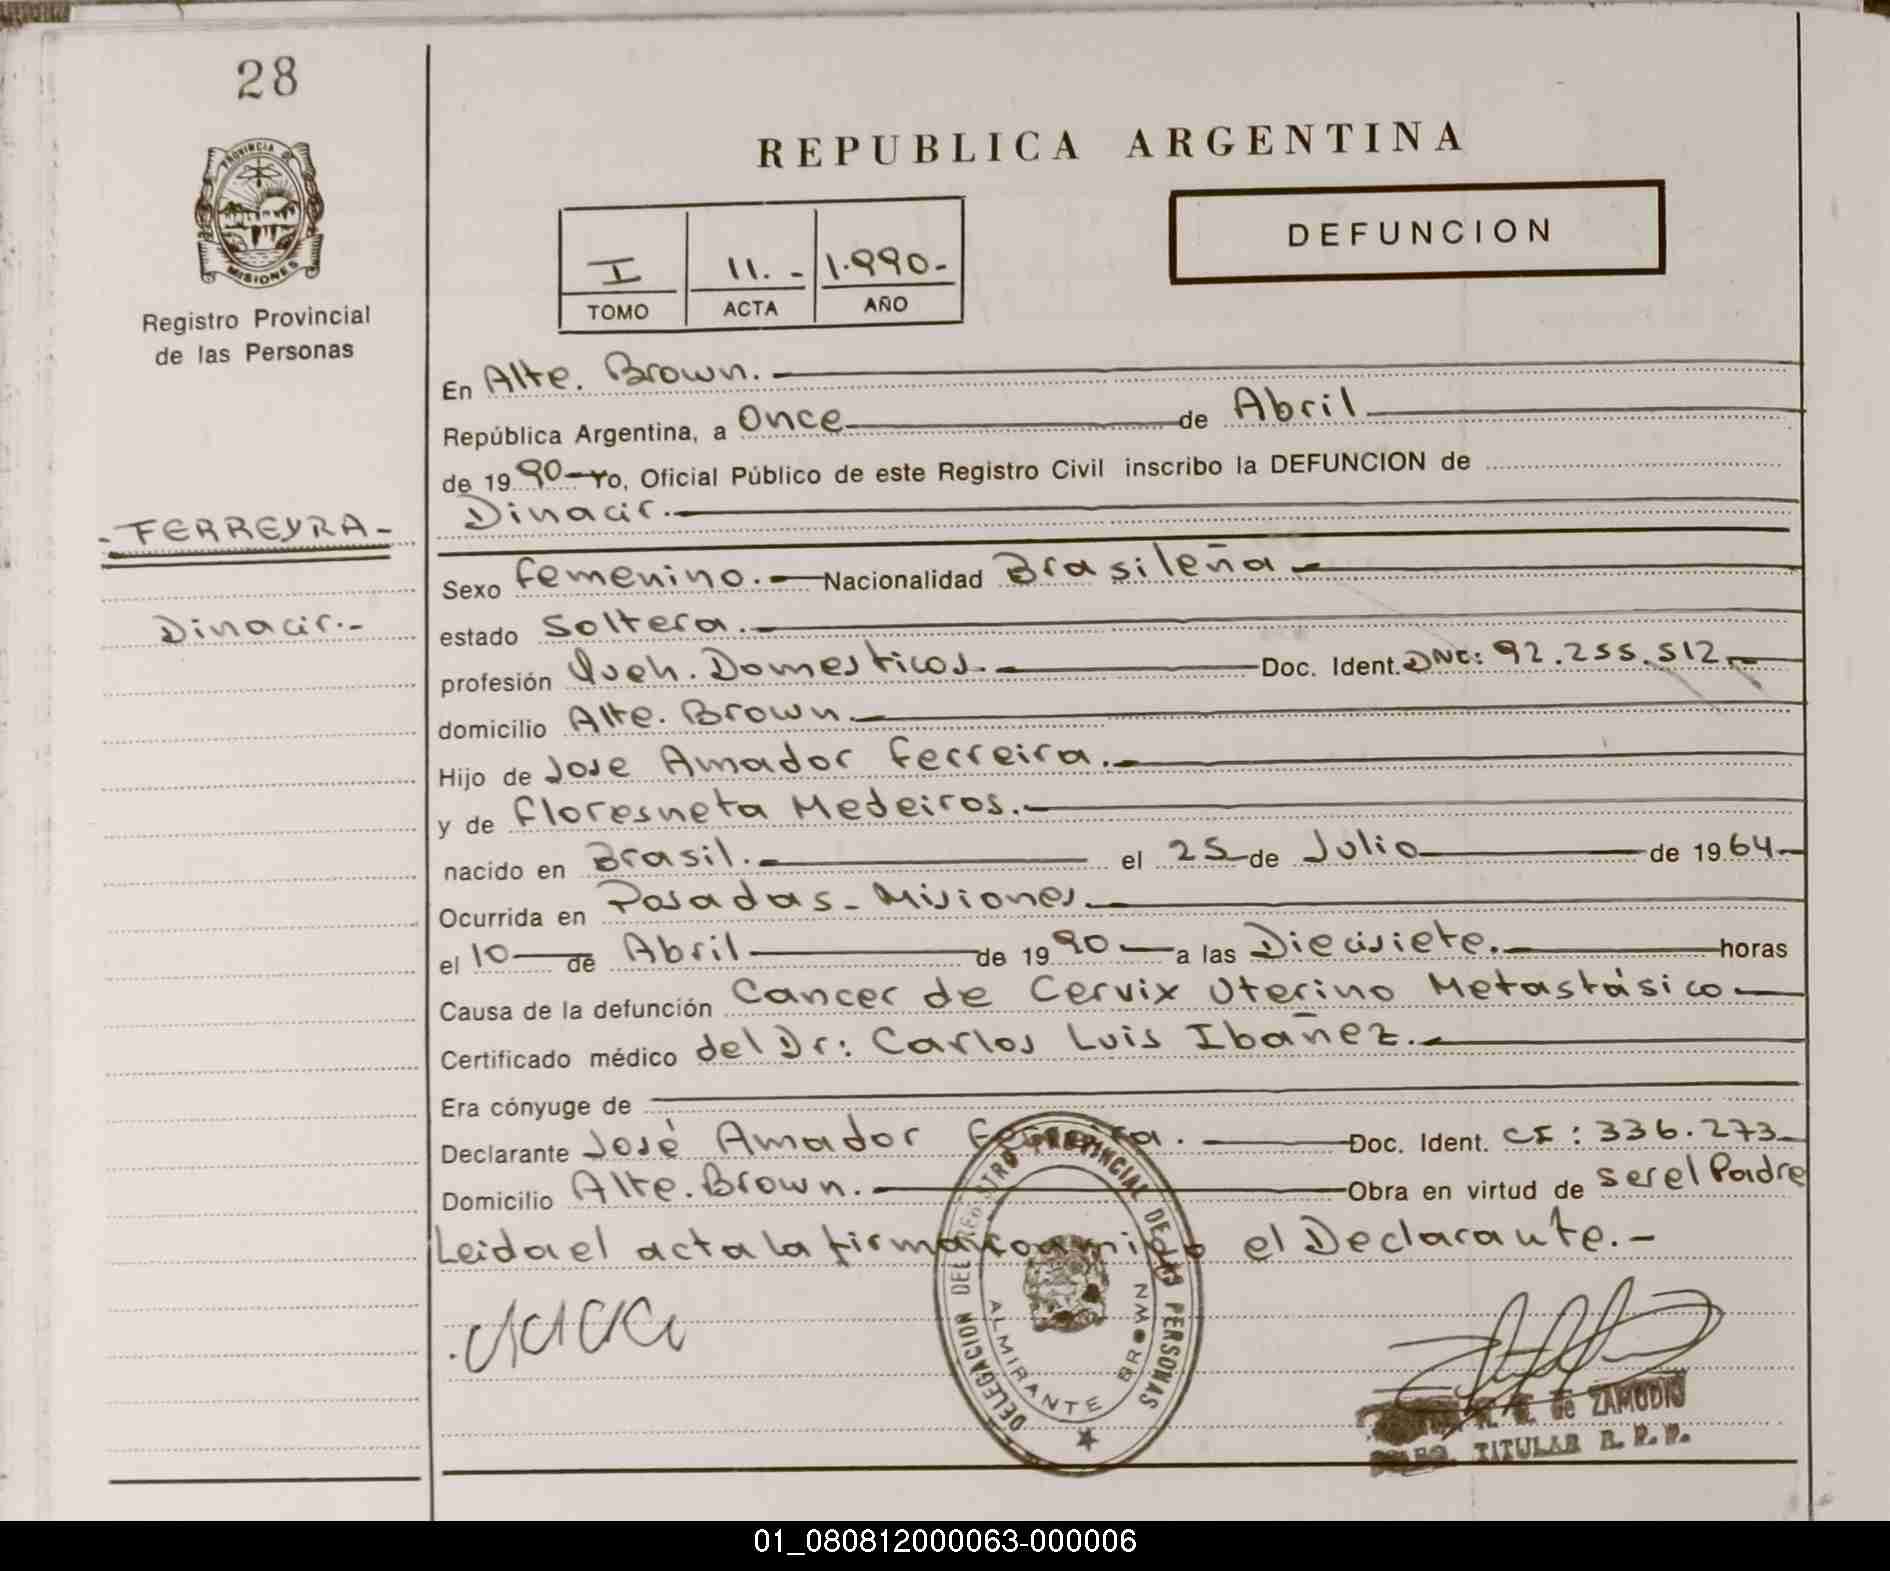 28
PROVINCIA DE
MISIONES
Registro Provincial
de las Personas
- FERREYRA -
Dinacir.-
REPUBLICA ARGENTINA
I 11.- 1.990-
TOMO ACTA AÑO
DEFUNCION
En Alte. Brown.
República Argentina, a Once de Abril
de 1990 - yo, Oficial Público de este Registro Civil inscribo la DEFUNCION de
Dinacir.
Sexo femenino. Nacionalidad Brasileña
estado Soltera.
profesión Queh. Domesticos. Doc. Ident. DNC: 92.255.512
domicilio Alte. Brown.
Hijo de Jose Amador Ferreira.
y de Floresneta Medeiros.
nacido en Brasil. el 25 de Julio de 1964
Ocurrida en Posadas - Misiones.
el 10 de Abril de 1990 a las Diecisiete. horas
Causa de la defunción Cancer de Cervix Uterino Metastásico
Certificado médico del Dr: Carlos Luis Ibañez.
Era cónyuge de
Declarante José Amador Ferreira. Doc. Ident. CI: 336.273
Domicilio Alte. Brown. Obra en virtud de ser el Padre
Leida el acta la firma conmigo el Declarante.-
DELEGACION DEL REGISTRO PROVINCIAL DE LAS PERSONAS
ALMIRANTE BROWN
de ZAMUDIO
TITULAR R. P. P.
01_080812000063-000006